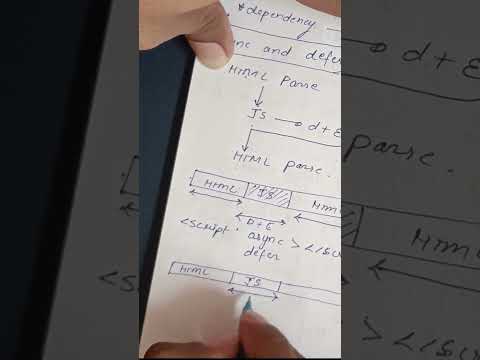 * dependency
and defer
HTML Parse
JS → d + E
HTML parse.
HTML JS HTML
D + E
<script async > </sc
defer
HTML JS